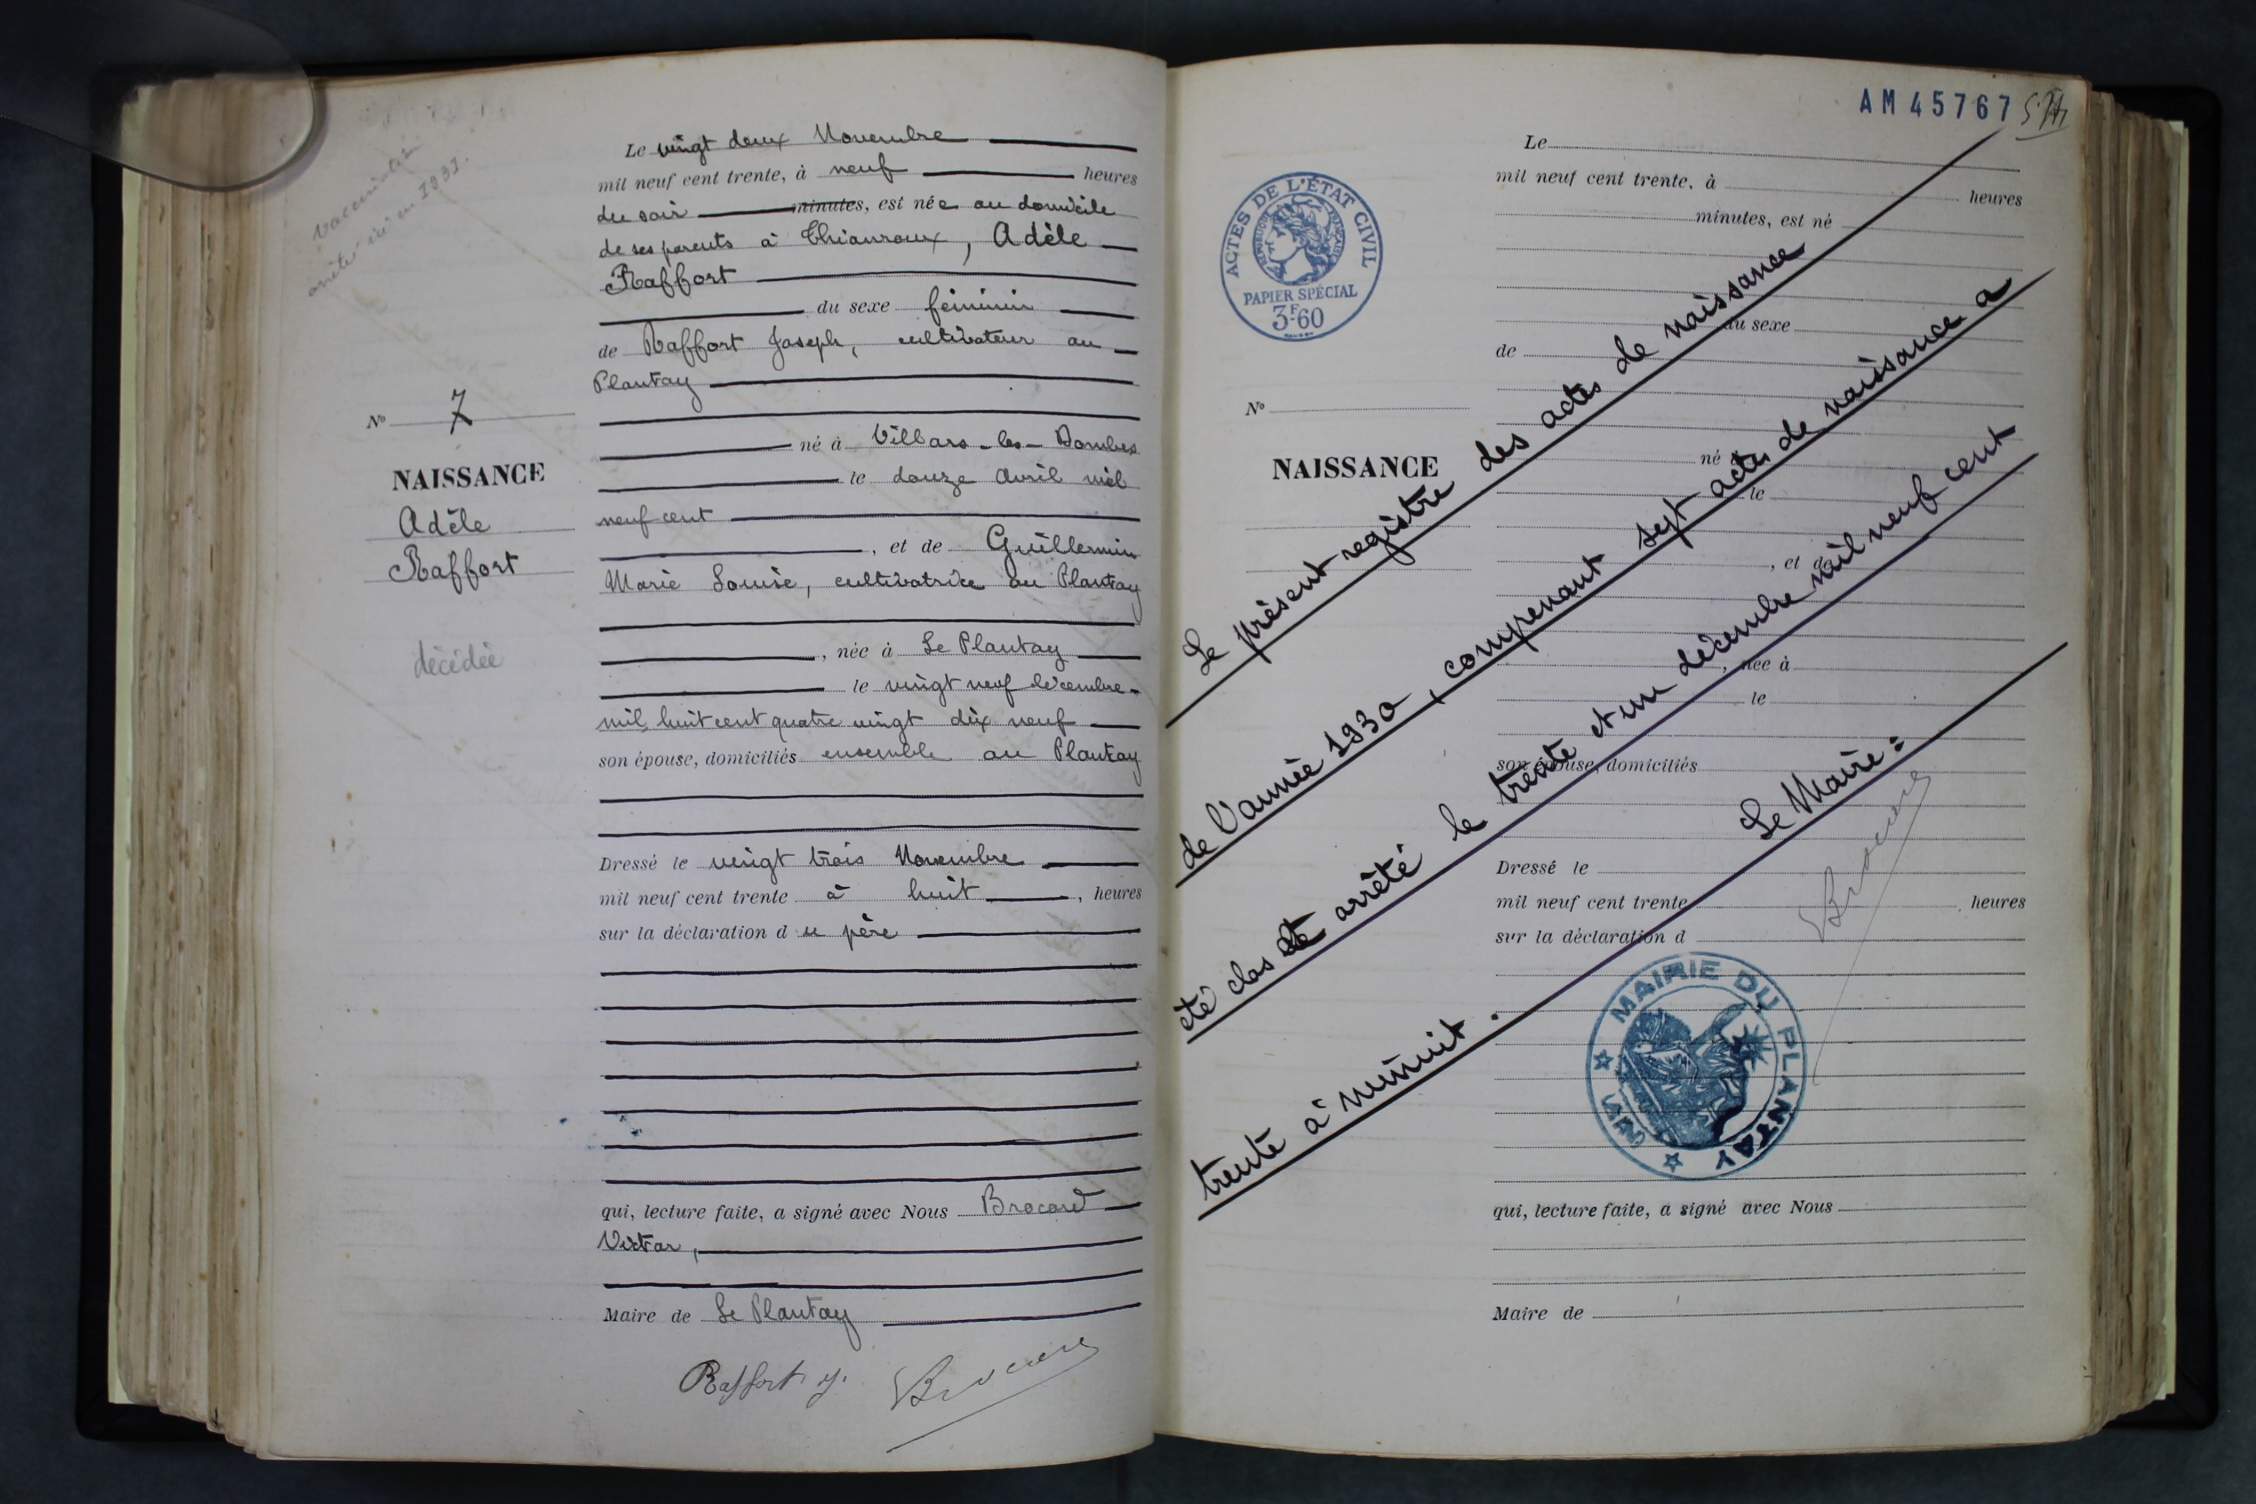 vaccination
arrêtée ici en 1931.
Le vingt deux Novembre
mil neuf cent trente, à neuf heures
du soir minutes, est née au domicile
de ses parents à Thianroux, Adèle
Raffort
du sexe féminin
de Raffort Joseph, cultivateur au
Plantay
né à Villars-les-Dombes
le douze Avril mil
neuf cent
, et de Guillermin
Marie Louise, cultivatrice au Plantay
, née à Le Plantay
le vingt neuf décembre
mil huit cent quatre vingt dix neuf
son épouse, domiciliés ensemble au Plantay
Dressé le vingt trois Novembre
mil neuf cent trente à huit, heures
sur la déclaration du père
qui, lecture faite, a signé avec Nous Brocard
Victor,
Maire de Le Plantay
Raffort J.
Brocard
No 7
NAISSANCE
Adèle
Raffort
décédée
AM 45767
ACTES DE L'ÉTAT CIVIL
RÉPUBLIQUE FRANÇAISE
PAPIER SPÉCIAL
3F.60
Le
mil neuf cent trente, à heures
minutes, est né
du sexe
de
No
NAISSANCE
né à
le
, et de
, née à
le
son épouse, domiciliés
Dressé le
mil neuf cent trente heures
sur la déclaration d
qui, lecture faite, a signé avec Nous
Maire de
Le présent registre des actes de naissance
de l'année 1930, comprenant sept actes de naissance a
été clos et arrêté le trente et un décembre mil neuf cent
trente à minuit.
Le Maire:
Brocard
MAIRIE DU PLANTAY
(AIN)